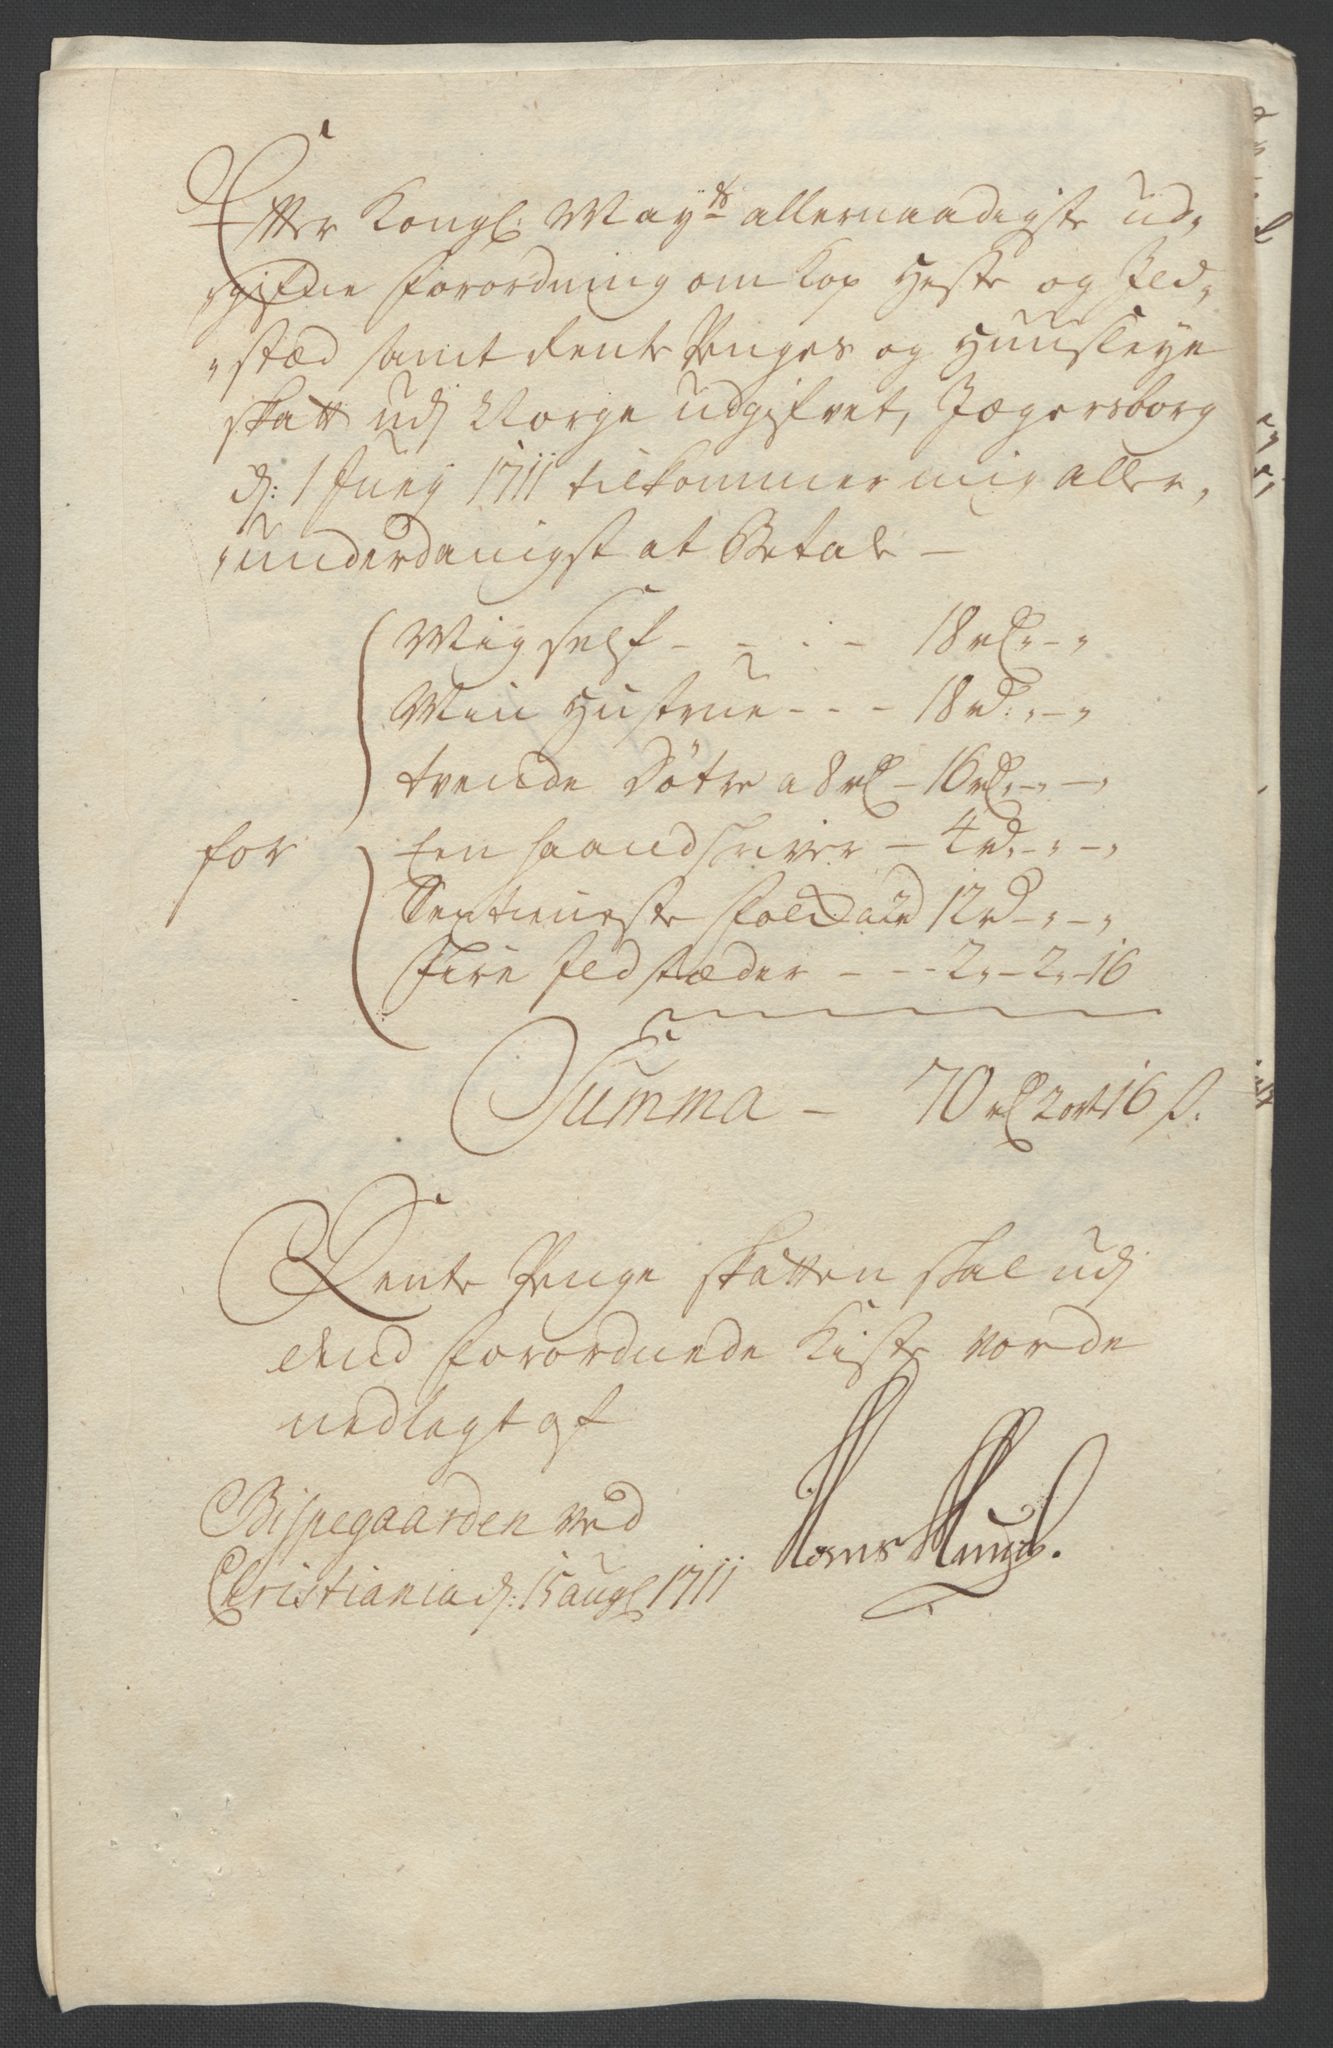 Efter Kongl: May.ts allernaadigste ud,
,gifne forordning om Kop Heste og Ild,
,stæd samt Rente Penges og Huusleye
skatt udj Norge udgifvet, Jægersborg
d: 1 Junij 1711 tilkommer mig aller,
,underdanigst at Betale –
Mig self - - . - 18 rd. - „
Min Hustrue - - - 18 rd: „ - „
tvende Døtre a 8 rd – 16 rd. - „ - „
for En haandskriver – 4 rd. - „ - „
Sex tieneste folck a 2 rd 12 rd - „ - „
Fire Ild stæder - - - 2 „ - 2 „ - 16
Summa – 70 rd 2 ort 16 s.
Rente Penge skatten skal udj
dend forordnede Kiste vorde
nedlagt af
Bispegaarden ved
Christiania d: 15 augl 1711
Hans Munch.